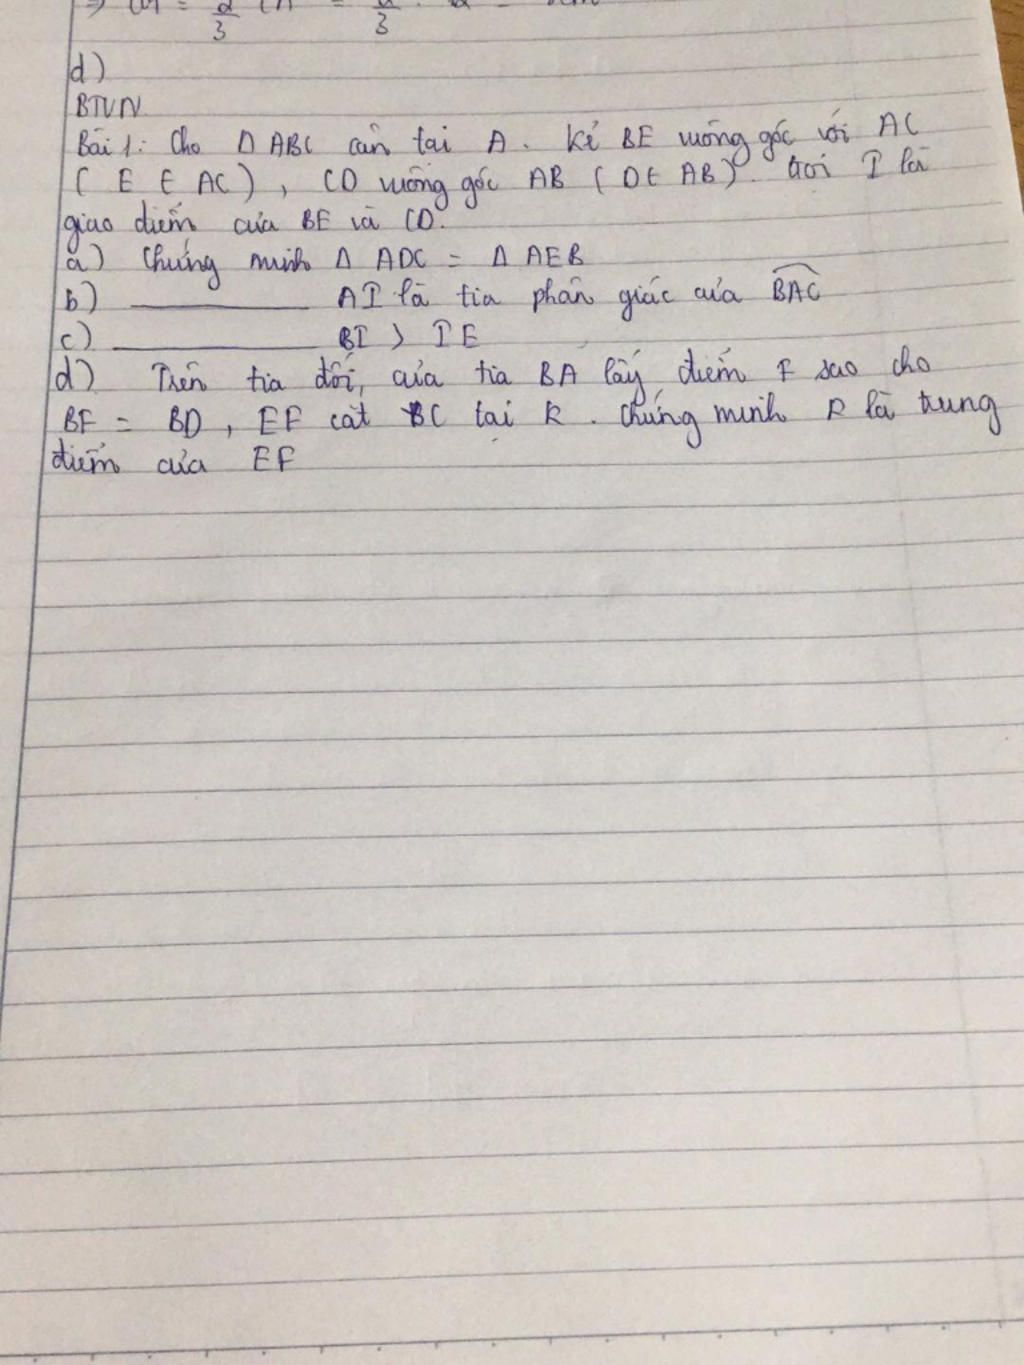 d)
BTVN
Bài 1: Cho Δ ABC cân tại A. Kẻ BE vuông góc với AC
( E ∈ AC ), CD vuông góc AB ( D ∈ AB ). Gọi I là
giao điểm của BE và CD.
a) Chứng minh Δ ADC = Δ AEB
b) ________ AI là tia phân giác của BAC
c) ________ BI > IE
d) Trên tia đối, của tia BA lấy điểm F sao cho
BF = BD, EF cắt BC tại K. Chứng minh K là trung
điểm của EF